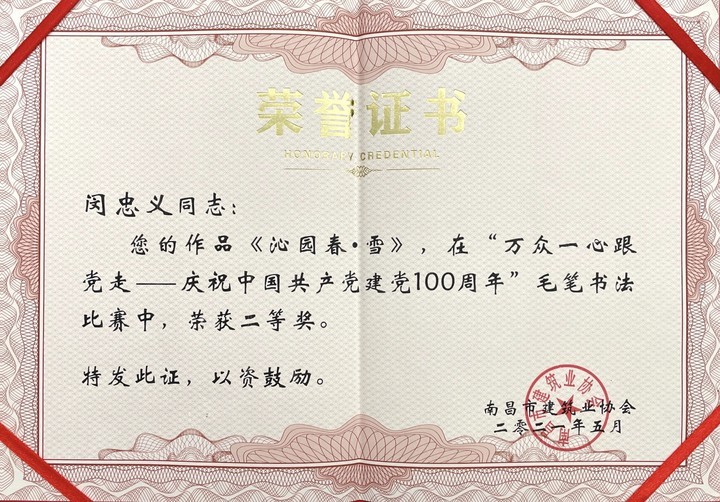 荣誉证书
HONORARY CREDENTIAL
闵忠义同志：
您的作品《沁园春·雪》，在“万众一心跟
党走——庆祝中国共产党建党100周年”毛笔书法
比赛中，荣获二等奖。
特发此证，以资鼓励。
南昌市建筑业协会
二零二一年五月
南昌市建筑业协会